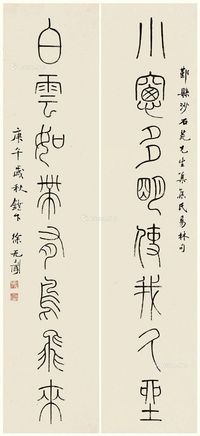 鄞縣沙石荒先生集焦氏易林句
小窗多明使我久坐
白雲如帶有鳥飛來
庚午歲秋 徐无聞